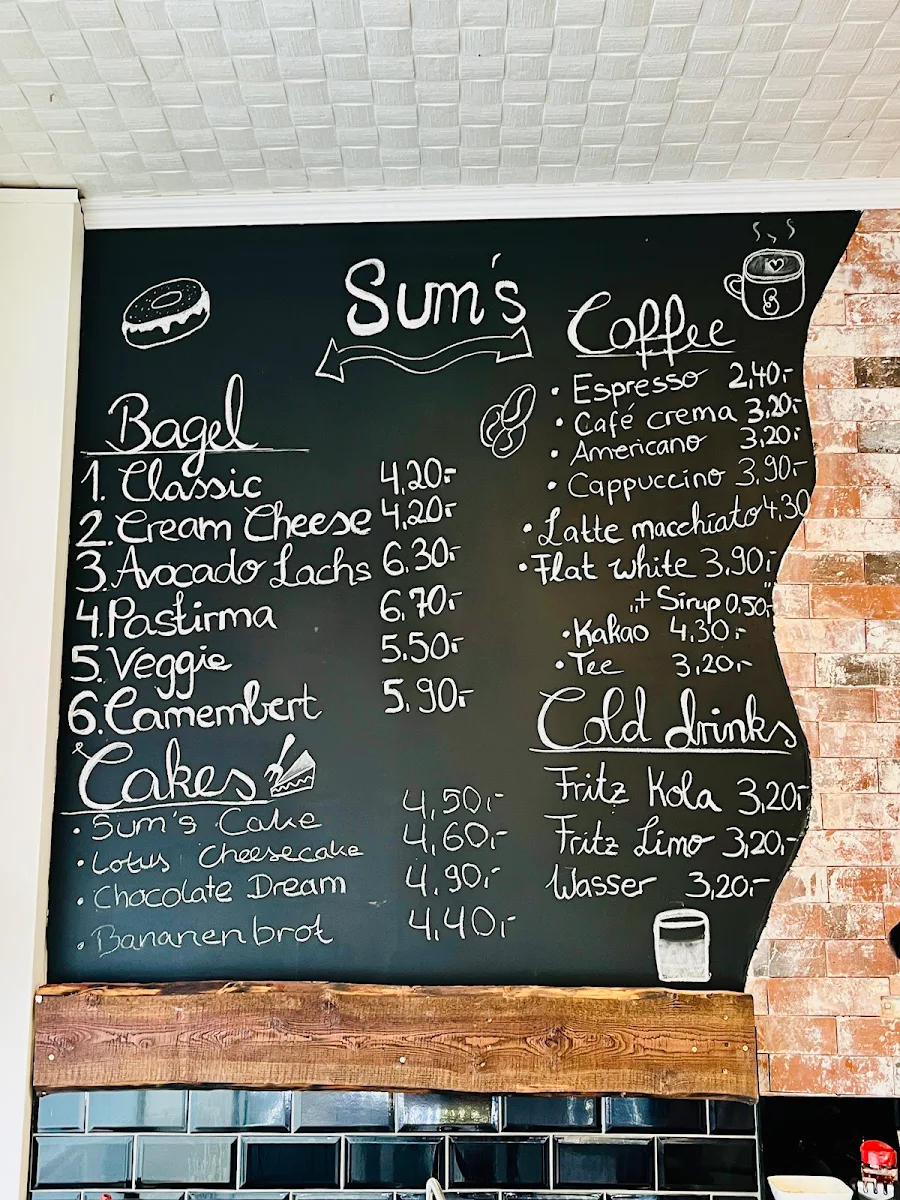 Sum's
Bagel
1. Classic 4,20,-
2. Cream Cheese 4,20,-
3. Avocado Lachs 6.30,-
4. Pastirma 6,70,-
5. Veggie 5.50,-
6. Camembert 5,90,-
Cakes
• Sum's Cake 4,50,-
• Lotus Cheesecake 4,60,-
• Chocolate Dream 4,90,-
• Bananenbrot 4,40,-
Coffee
• Espresso 2,40,-
• Café crema 3,20,-
• Americano 3,20,-
• Cappuccino 3,90,-
• Latte macchiato 4,30
• Flat white 3,90,-
"+ Sirup 0,50,-"
• Kakao 4,30,-
• Tee 3,20,-
Cold drinks
Fritz Kola 3,20,-
Fritz Limo 3,20,-
Wasser 3,20,-